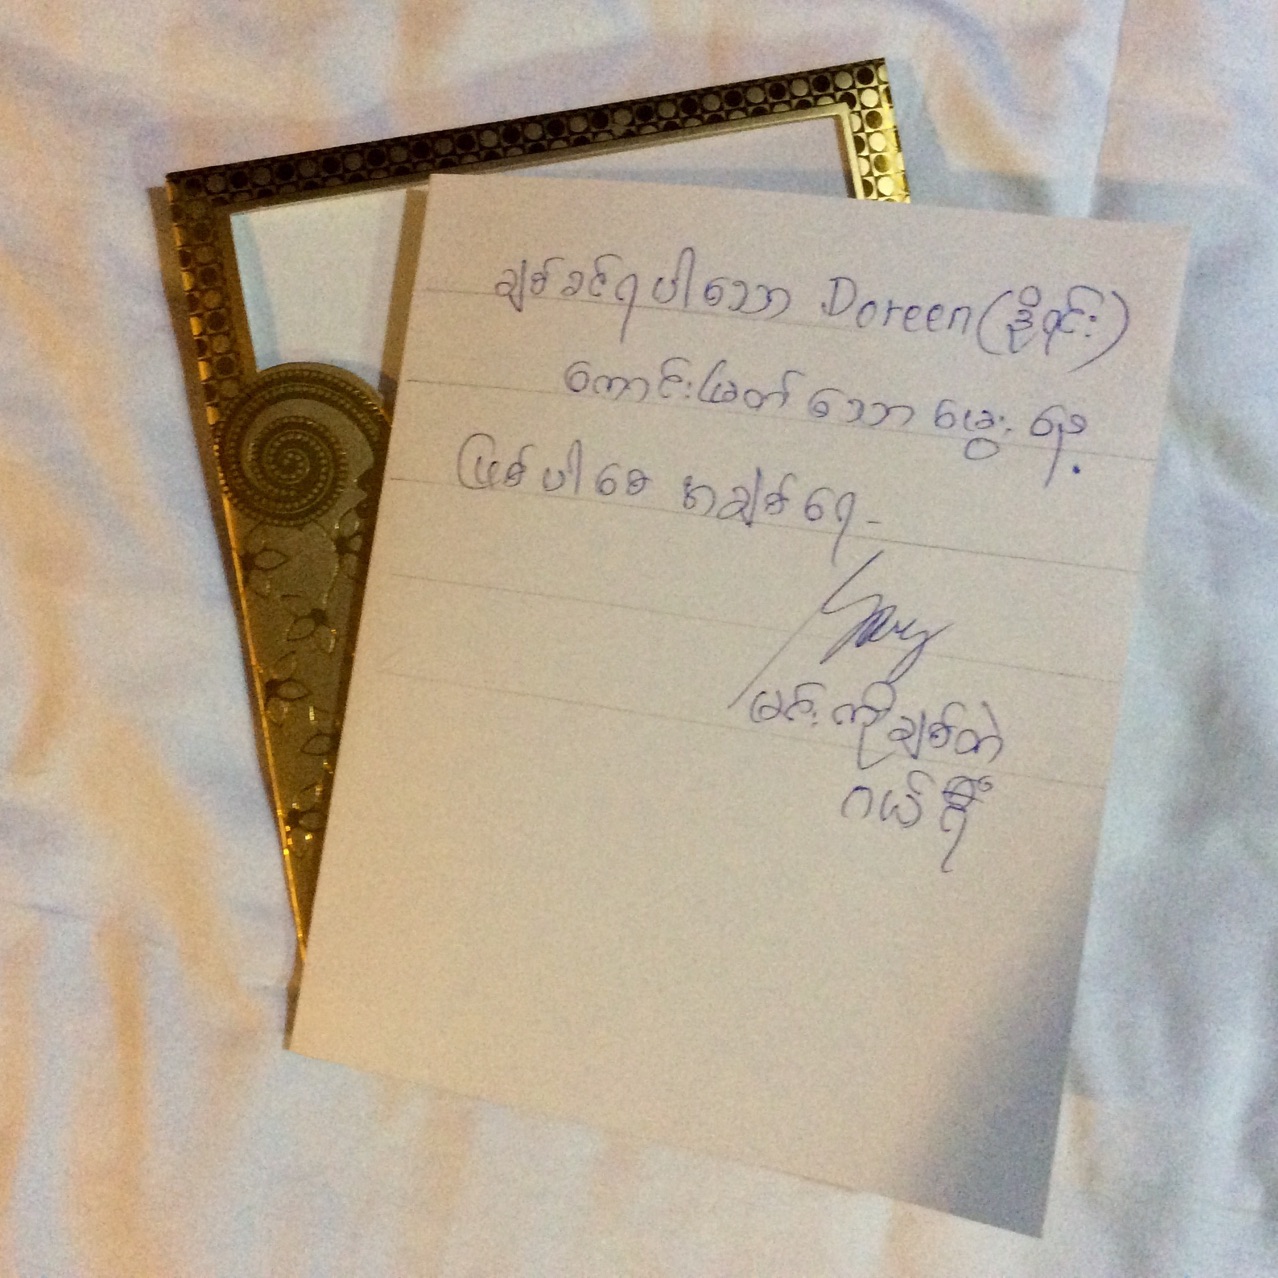 ချစ်ခင်ရပါသော Doreen (ဒိုရင်း)
ကောင်းမြတ်သော မွေးနေ့
ဖြစ်ပါစေ အချစ်ရေ-
Gary
မင်းကိုချစ်တဲ့
ဂယ်ရီ